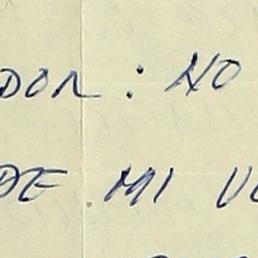 DOR: NO
DE MI